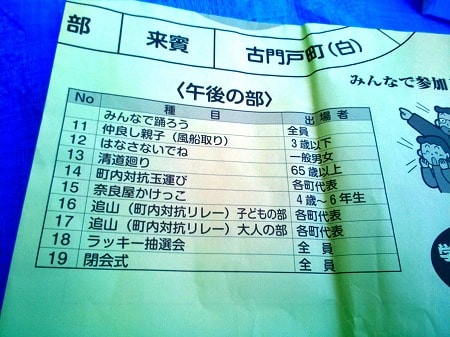 部 来賓 古門戸町(白)
みんなで参加
〈午後の部〉
No 種目 出場者
みんなで踊ろう 全員
11 仲良し親子(風船取り) 3歳以下
12 はなさないでね 一般男女
13 清道廻り 65歳以上
14 町内対抗玉運び 各町代表
15 奈良屋かけっこ 4歳~6年生
16 追山(町内対抗リレー)子どもの部 各町代表
17 追山(町内対抗リレー)大人の部 各町代表
18 ラッキー抽選会 全員
19 閉会式 全員